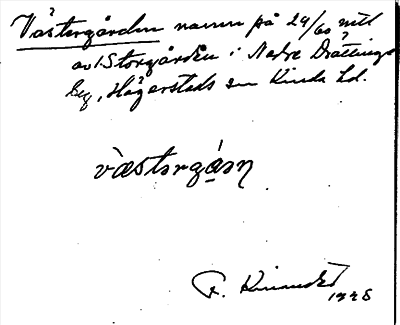 Västergården namn på 29/60 mtl
av Storgården i Nedre Drättinge
by, Hägerstads sn Kinda hd.
västərgǻrṇ
1928